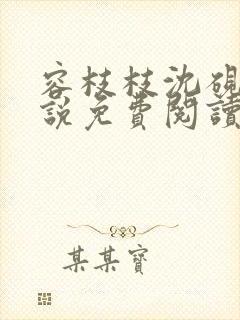 容枝枝沈硯
說免費閱讀
某某寶